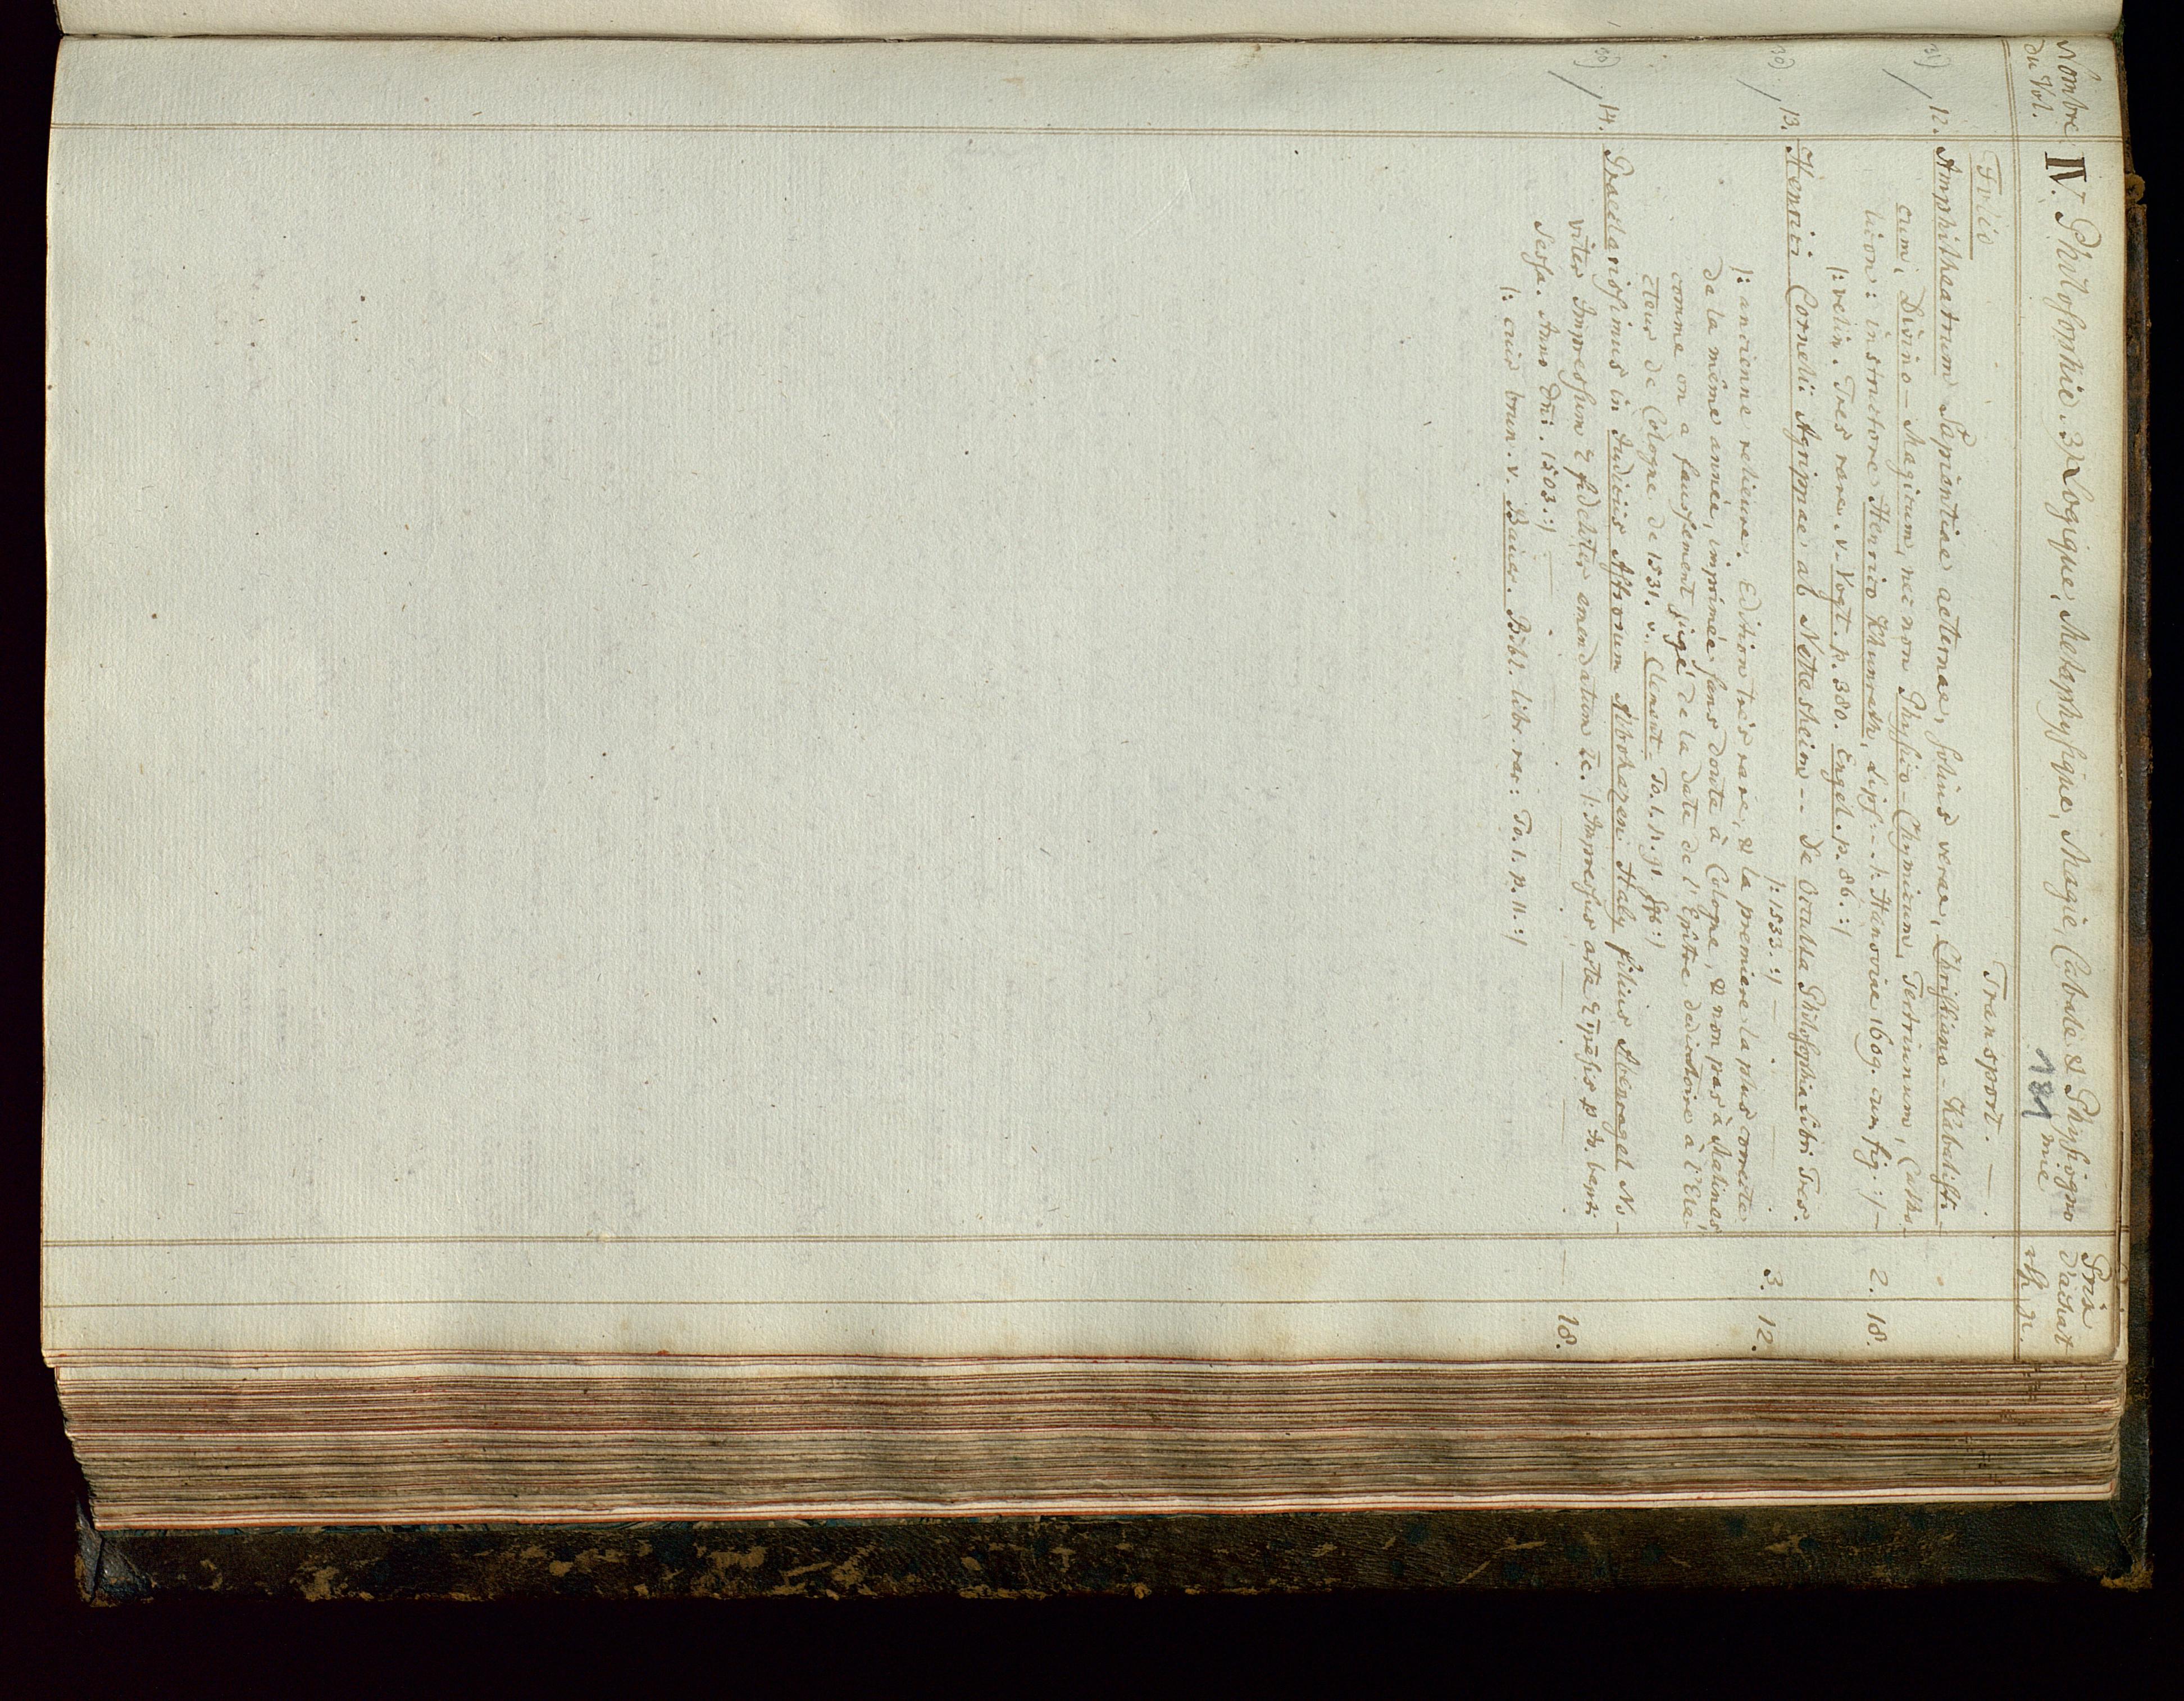 Nombre
du Vol.
IV. Philosophie. 3) Logique, Metaphysique, Magie, Cabale & Physiogno
mie
181
Prix
d'achat
rh. gr.
Folio
Transport. —
31) / 12. Amphitheatrum Sapientiae aeternae, solius verae, Christiano-Kabalisti-
cum, Divino-Magicum, nec non Physico-Chymicum, Tertrinum, Catho-
licon: instructore Henrico Khunrath, Lips. - /: Hanoviae 1609. cum fig. :/ — 2. 18.
/: velin. Tres rare. v. Vogt. p. 380. Engel. p. 86. :/
30) / 13. Henrici Cornelii Agrippae ab Nettesheim - - De Occulta Philosophia Libri Tres.
/: 1533. :/ — 3. 12.
/: ancienne relieure. Edition très rare, & la premiere la plus
de la même année, imprimée sans doute à Cologne, & non pas à Malines,
comme on a faussement jugé de la date de l'Epître dedicatoire à l'Ele-
cteur de Cologne de 1531. v. Clement. To. 1. p. 91 sqq :/
30) / 14. Praeclarissimus in Judiciis Astrorum Albohazen Haly filius Abenragel No-
viter Impressum & fideliter emendatum &c. /: Impressus arte & īpēsis p Io. bapti
Sessa. Anno Dñi. 1503. :/ — 18.
/: cuir brun. v. Bauer. Bibl. libr. rar: To. 1. p. 11. :/